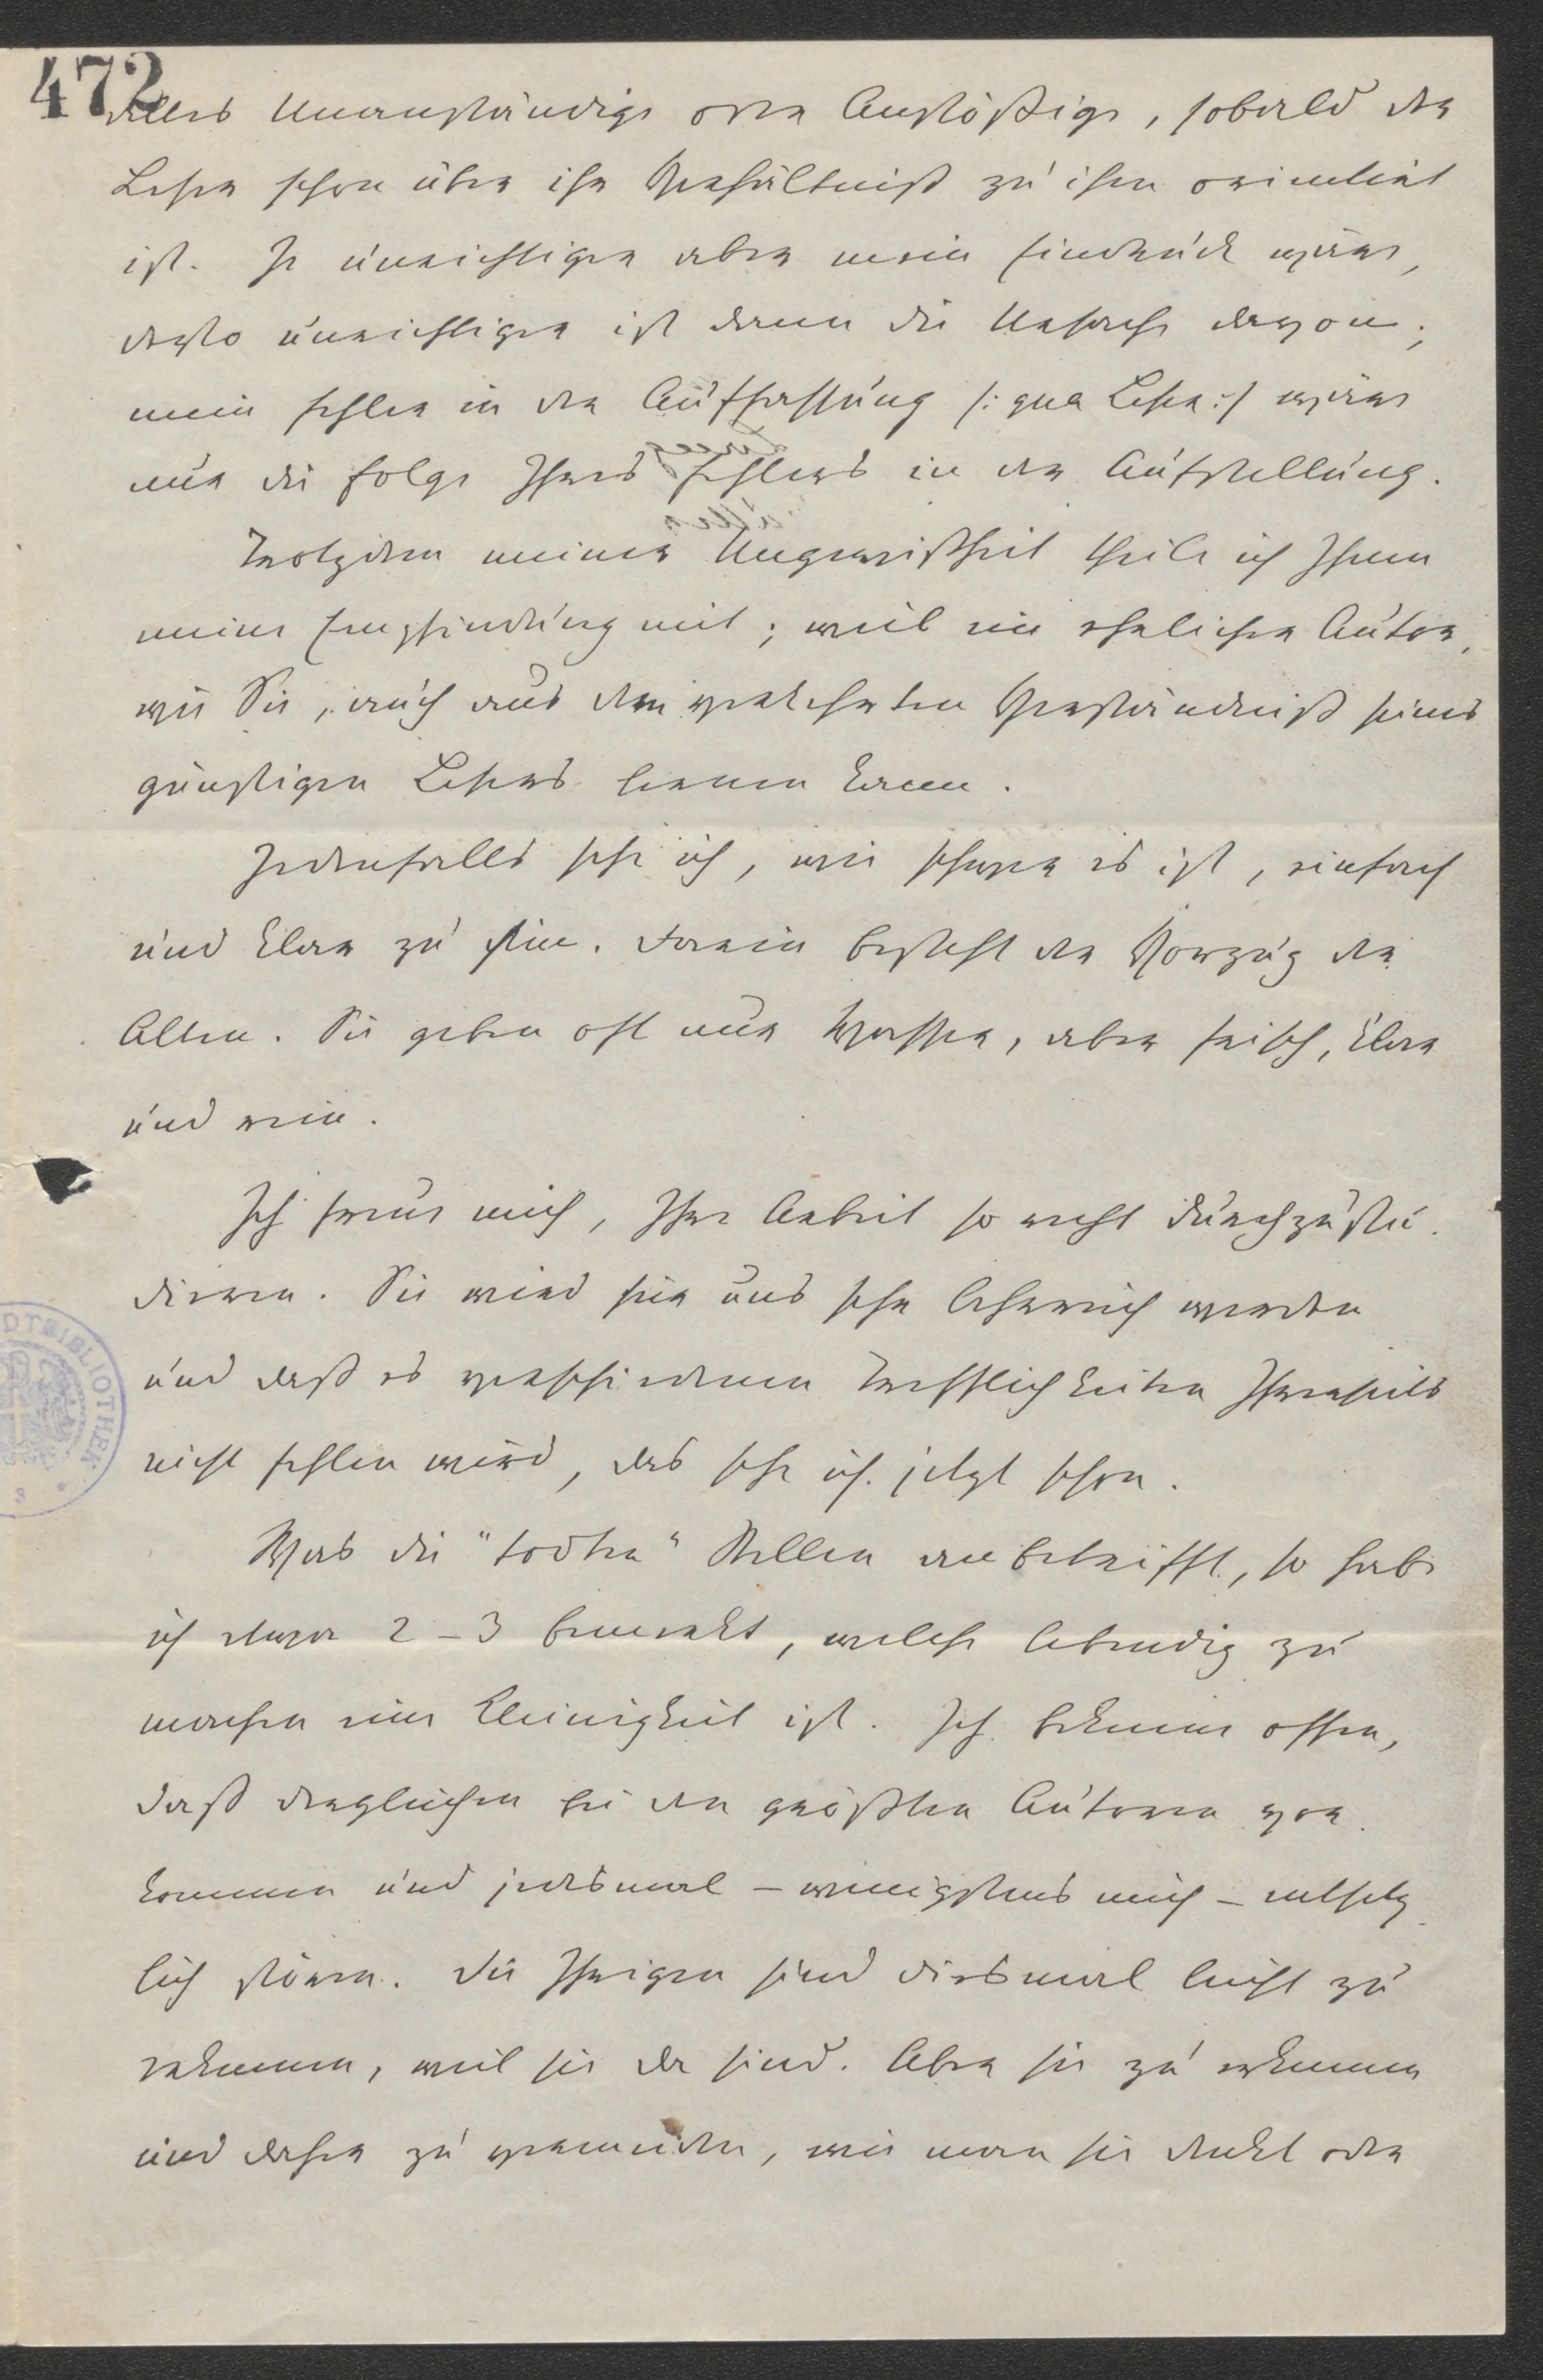 472
alles Unanständige oder Anstößige, sobald der
Leser schon über ihr Verhältniß zu ihm orientirt
ist. Je unrichtiger aber mein Eindruck wäre,
desto unrichtiger ist dann die Ursache davon;
mein Fehler in der Auffassung /: qua Leser :/ wäre
nur die Folge Ihres Fehlers in der Aufstellung.
Trotzdem meiner Ungewißheit theile ich Ihnen
meine Empfindung mit; weil ein ehrlicher Autor,
wie Sie, auch aus dem verkehrten Verständniß seines
günstigen Lesers lernen kann.
Jedenfalls sehe ich, wie schwer es ist, einfach
und klar zu sein. Darin besteht der Vorzug der
Alten. Sie geben oft nur Wasser, aber frisch, klar
und rein.
Ich freue mich, Ihre Arbeit so recht durchzustu-
dieren. Sie wird für uns sehr lehrreich werden
und daß es verschiedenen Trefflichkeiten Ihrerseits
nicht fehlen wird, das sehe ich jetzt schon.
Was die "todten" Stellen anbetrifft, so habe
ich etwa 2-3 bemerkt, welche lebendig zu
machen eine Kleinigkeit ist. Ich bekenne offen,
daß dergleichen bei den größten Autoren vor-
kommen und jedesmal - wenigstens mich - entsetz-
lich stören. Die Ihrigen sind diesmal leicht zu
erkennen, weil sie da sind. Aber sie zu erkennen
und daher zu vermeiden, wie man sie denkt oder
DTBIBLIOTHEK
3